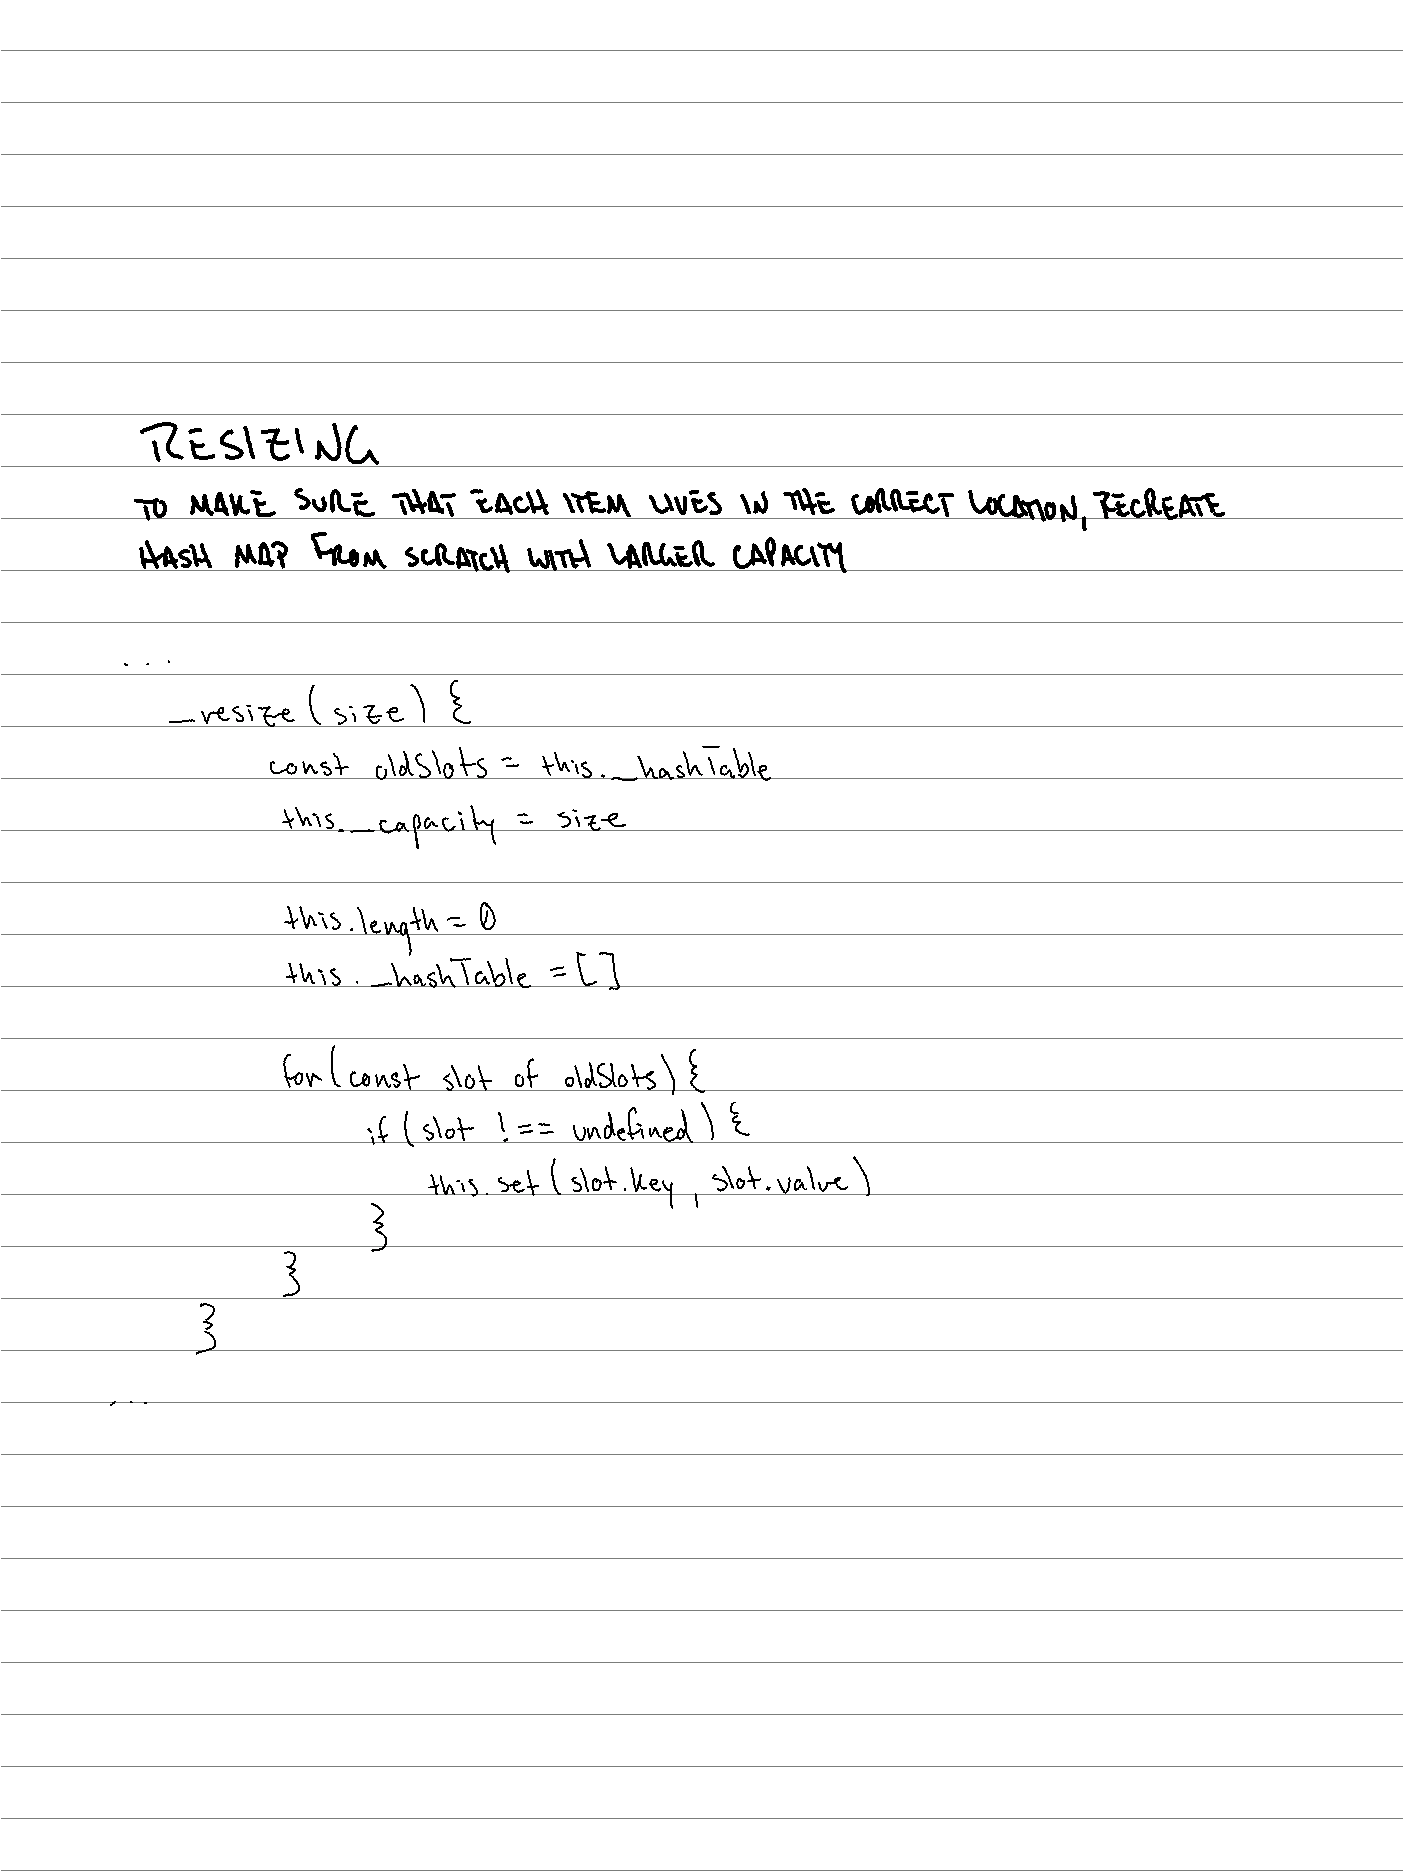 RESIZING
TO MAKE SURE THAT EACH ITEM LIVES IN THE CORRECT LOCATION, RECREATE
HASH MAP FROM SCRATCH WITH LARGER CAPACITY
...
_resize(size) {
const oldSlots = this._hashTable
this._capacity = size
this.length = 0
this._hashTable = []
for(const slot of oldSlots) {
if (slot !== undefined) {
this.set(slot.key, slot.value)
}
}
}
...